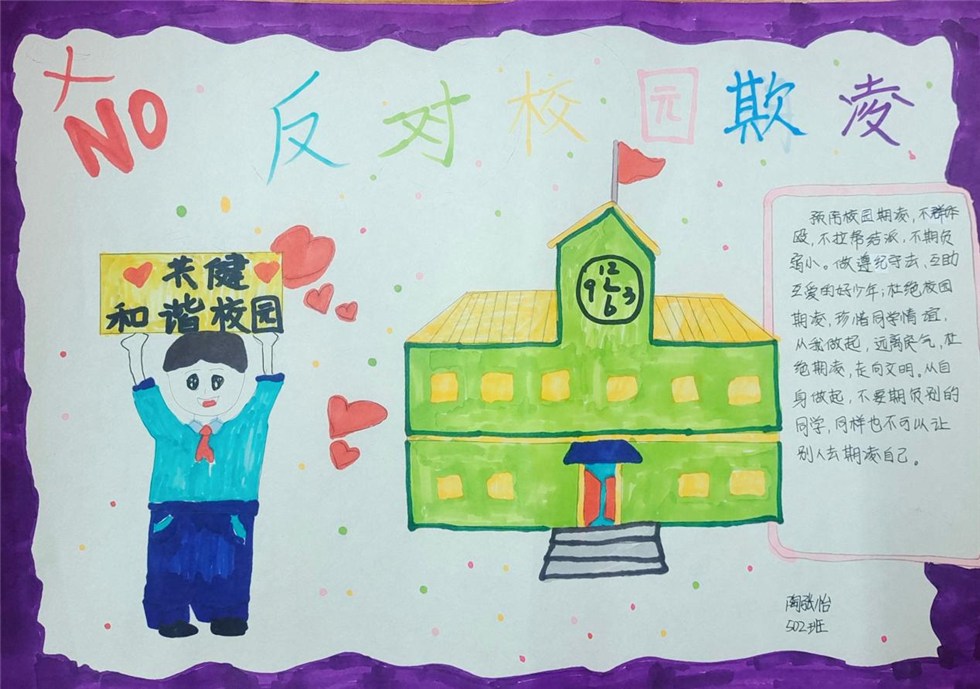 NO 反对校园欺凌
共健
和谐校园
12
9 3
6
预防校园期凌,不群
殴,不拉帮结派,不期负
弱小。做遵纪守法,互助
互爱的好少年;杜绝校园
期凌,珍惜同学情谊,
从我做起,远离戾气,杜
绝期凌,走向文明。从自
身做起,不要期负别的
同学,同样也不可以让
别人去期凌自己。
502班